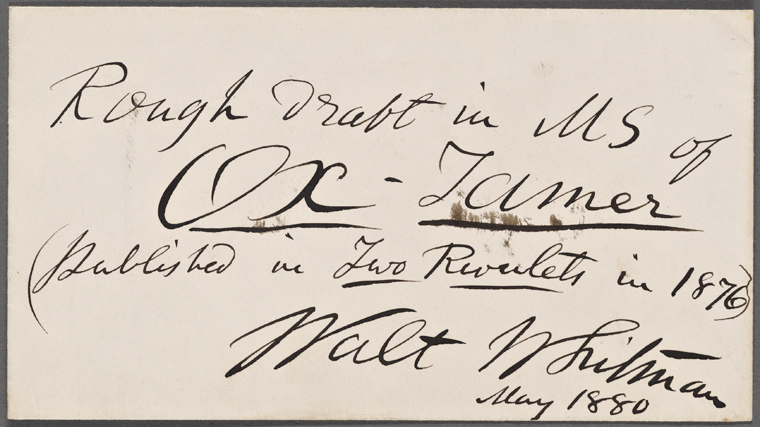 Rough draft in MS of
Ox-Tamer
(published in Two Rivulets in 1876)
Walt Whitman
May 1880